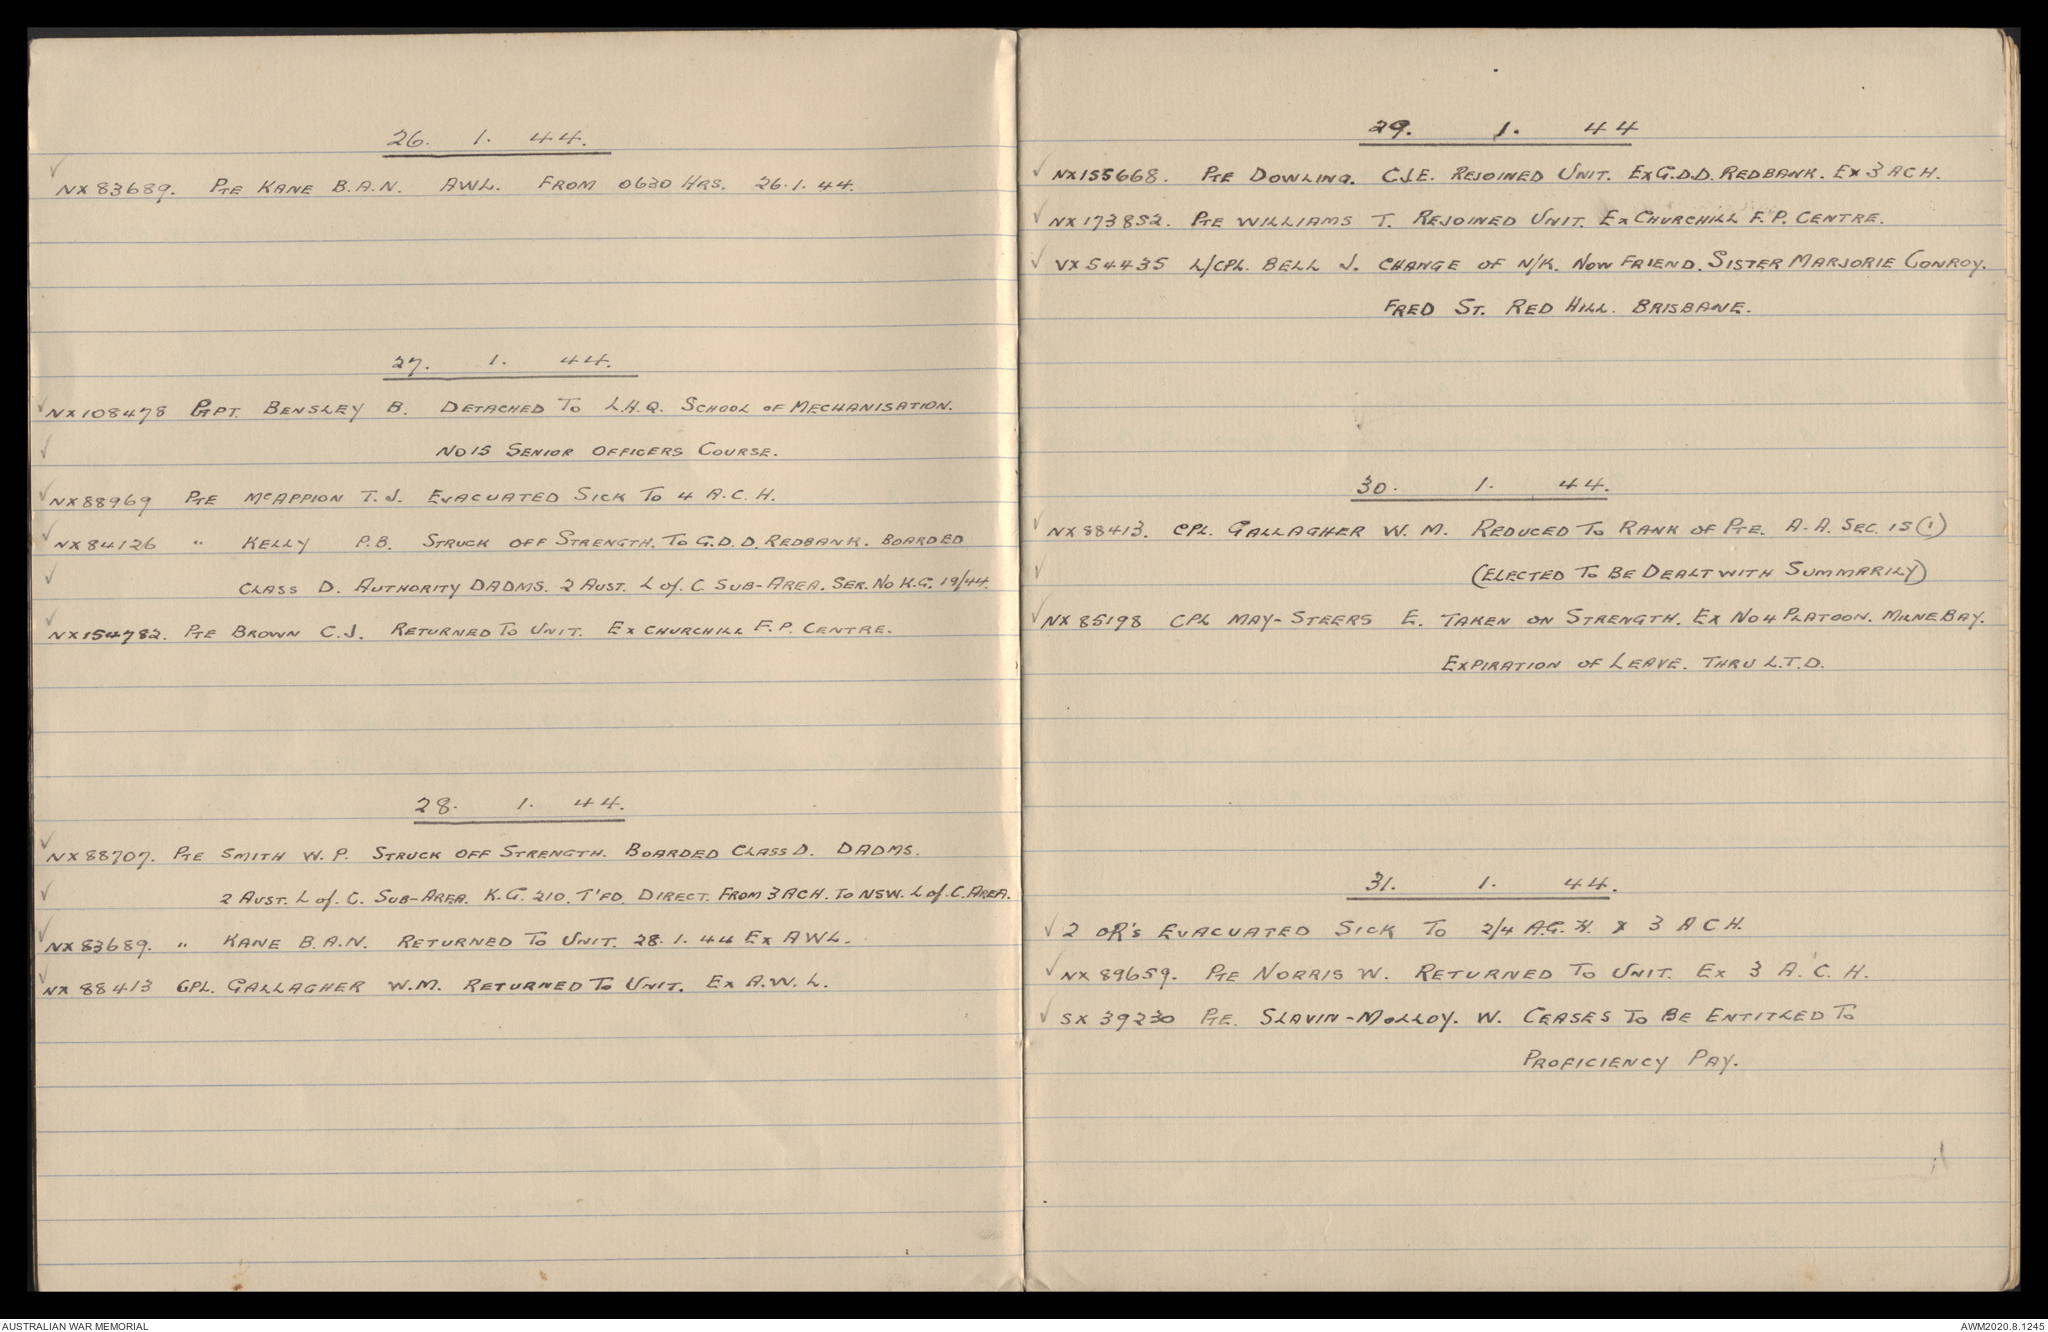 26. 1. 44.
✓ NX83689. Pte KANE B.A.N. AWL. FROM 0630 HRS. 26.1.44.
27. 1. 44.
✓ NX108478 CPT. BENSLEY B. DETACHED TO L.H.Q. SCHOOL OF MECHANISATION.
✓ NO 15 SENIOR OFFICERS COURSE.
✓ NX88969 Pte McAPPION T.J. EVACUATED SICK TO 4 A.C.H.
✓ NX84126 " KELLY P.B. STRUCK OFF STRENGTH. TO G.D.D. REDBANK. BOARDED
✓ CLASS D. AUTHORITY DADMS. 2 AUST. L of. C SUB-AREA. SER. No K.G. 19/44.
✓ NX154782. Pte BROWN C.J. RETURNED TO UNIT. Ex CHURCHILL F.P. CENTRE.
28. 1. 44.
✓ NX88707. Pte SMITH W.P. STRUCK OFF STRENGTH. BOARDED CLASS D. DADMS.
✓ 2 AUST. L of. C. SUB-AREA. K.G. 210. T'FD. DIRECT. FROM 3 ACH. TO NSW. L of. C. AREA.
✓ NX83689. " KANE B.A.N. RETURNED TO UNIT. 28.1.44 Ex AWL.
✓ NX88413 CPL. GALLAGHER W.M. RETURNED TO UNIT. Ex A.W.L.
29. 1. 44
✓ NX155668. Pte DOWLING. C.J.E. REJOINED UNIT. Ex G.D.D. REDBANK. Ex 3 ACH.
✓ NX173852. Pte WILLIAMS T. REJOINED UNIT. Ex CHURCHILL F.P. CENTRE.
✓ VX54435 L/CPL. BELL J. CHANGE OF N/K. NOW FRIEND. SISTER MARJORIE CONROY.
FRED ST. RED HILL. BRISBANE.
30. 1. 44.
✓ NX88413. CPL. GALLAGHER W.M. REDUCED TO RANK OF PTE. A.A. SEC. 15 (1)
✓ (ELECTED TO BE DEALT WITH SUMMARILY)
✓ NX85198 CPL MAY-STEERS E. TAKEN ON STRENGTH. Ex No 4 PLATOON. MILNE BAY.
EXPIRATION OF LEAVE. THRU L.T.D.
31. 1. 44.
✓ 2 OR's EVACUATED SICK TO 2/4 A.G.H. x 3 ACH.
✓ NX89659. Pte NORRIS W. RETURNED TO UNIT. Ex 3 A.C.H.
✓ SX39230 Pte. SLAVIN-MOLLOY. W. CEASES TO BE ENTITLED TO
PROFICIENCY PAY.
AUSTRALIAN WAR MEMORIAL
AWM2020.8.1245